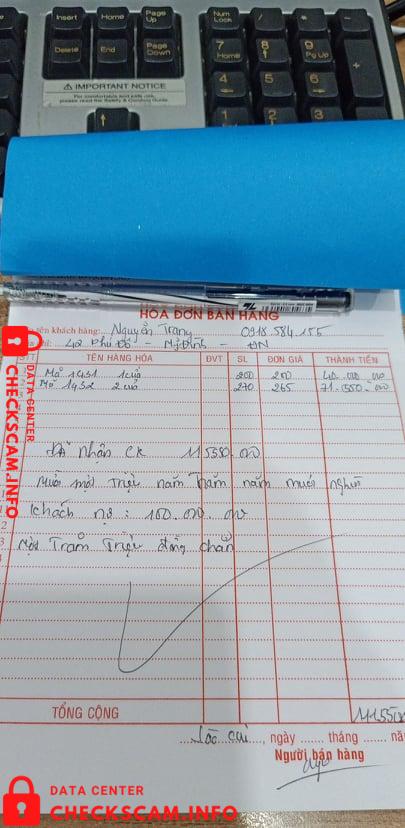 Insert Home Page Up
Num Lock / * -
Delete End Page Down
7 Home 8 9 Pg Up +
4 5 6
⚠ IMPORTANT NOTICE
For comfortable and safe use,
please read the Safety & Comfort Guide.
1 2 3
HÓA ĐƠN BÁN HÀNG
tên khách hàng: Nguyễn Trang 0918.584.155
chỉ: 42 Phú Đô - Mỹ Đình - ĐN
STT TÊN HÀNG HÓA ĐVT SL ĐƠN GIÁ THÀNH TIỀN
Mã 1451 1 200 200 40.000.000
Mã 1452 2 270 265 71.550.000
Đã nhận CK 11550.000
Mười một triệu năm trăm năm mươi nghìn
Khách nợ: 100.000.000
Một Trăm Triệu đồng chẵn
TỔNG CỘNG 111550
Lào Cai, ngày ...... tháng ...... nă
Người bán hàng
DATA CENTER
CHECKSCAM.INFO
DATA CENTER
CHECKSCAM.INFO